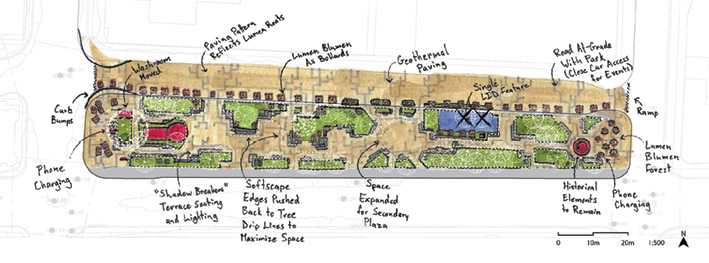 Washroom
Moved
Paving Pattern
Reflects Lumen Roots
Lumen Blumen
As Bollards
Geothermal
Paving
Single
LID Feature
Road At-Grade
With Park
(Close Car Access
for Events)
Curb
Bumps
Ramp
Phone
Charging
"Shadow Breakers"
Terrace Seating
and Lighting
Softscape
Edges Pushed
Back to Tree
Drip Lines to
Maximize Space
Space
Expanded
for Secondary
Plaza
Historical
Elements
to Remain
Lumen
Blumen
Forest
Phone
Charging
0 10m 20m 1:500 N